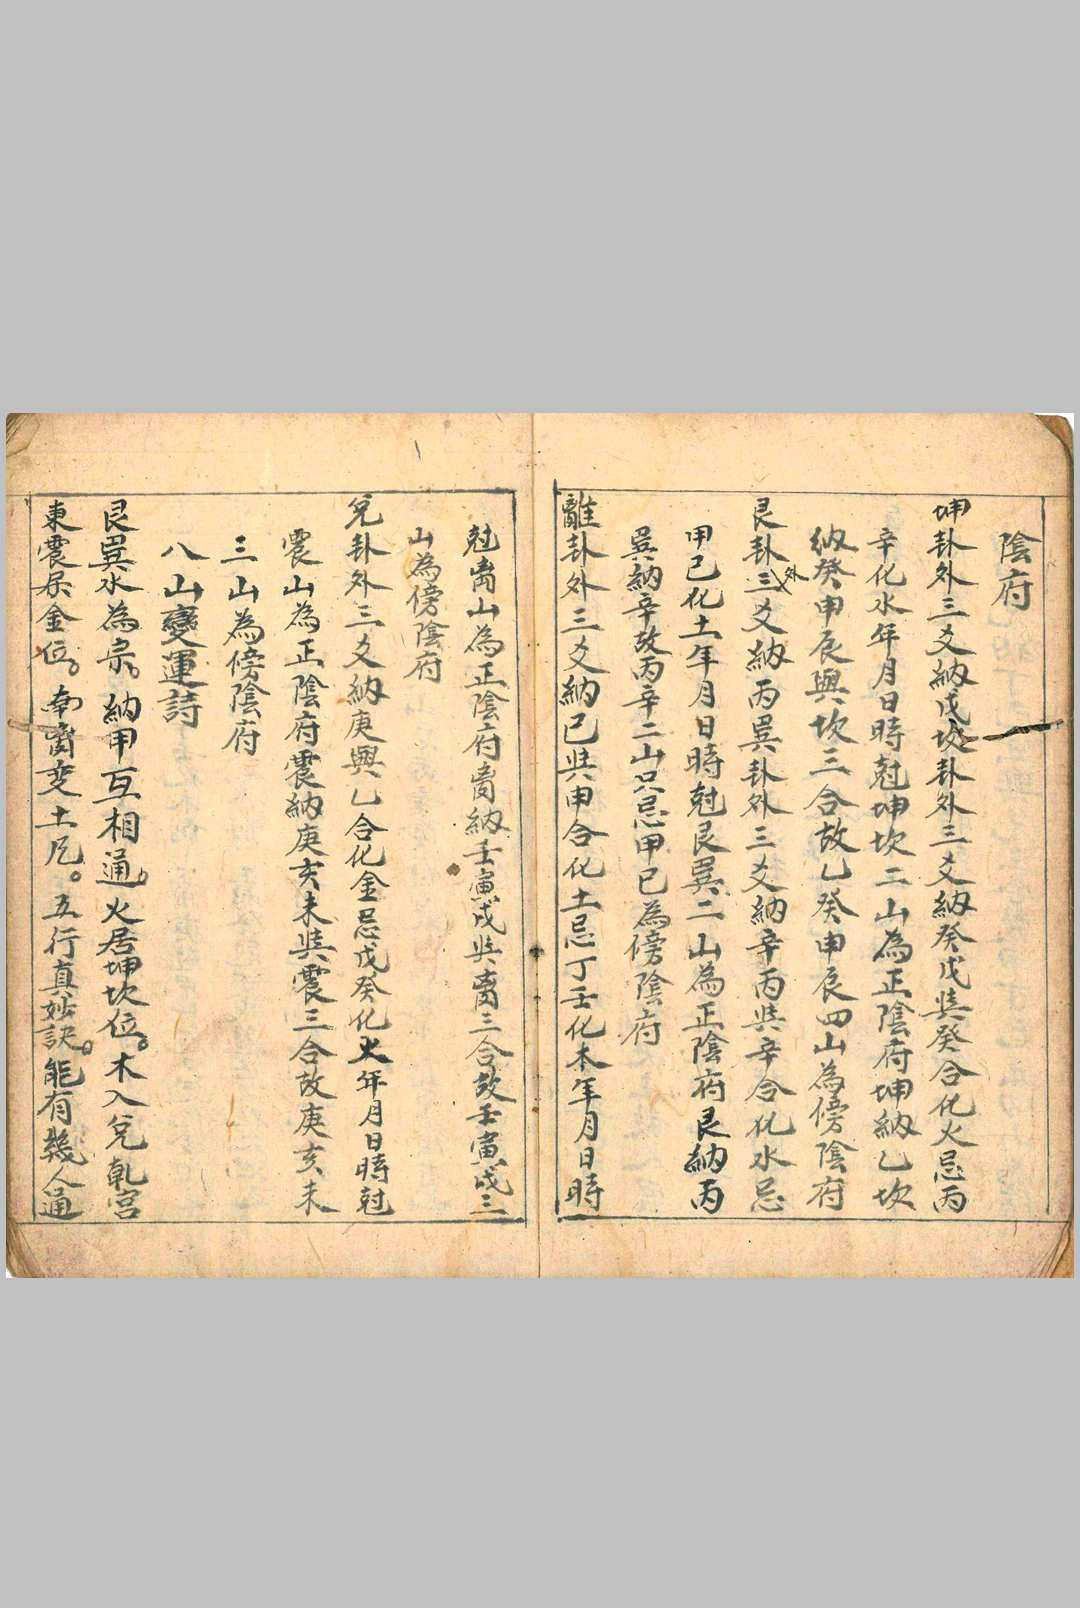 陰府
坤卦外三爻納戊坎卦外三爻納癸戊與癸合化火忌丙
辛化水年月日時尅坤坎二山為正陰府坤納乙坎
納癸申辰與坎三合故乙癸申辰四山為傍陰府
艮卦外三爻納丙巽卦外三爻納辛丙與辛合化水忌
甲己化土年月日時尅艮巽二山為正陰府艮納丙
巽納辛故丙辛二山只忌甲己為傍陰府
離卦外三爻納己與甲合化土忌丁壬化木年月日時
尅离山為正陰府离納壬寅戌與离三合故壬寅戌三
山為傍陰府
兌卦外三爻納庚與乙合化金忌戊癸化火年月日時尅
震山為正陰府震納庚亥未與震三合故庚亥未
三山為傍陰府
八山變運詩
艮巽水為宗。納甲互相通。火居坤坎位。木入兌乾宮
東震屬金位。南离变土尼。五行真妙訣。能有幾人通